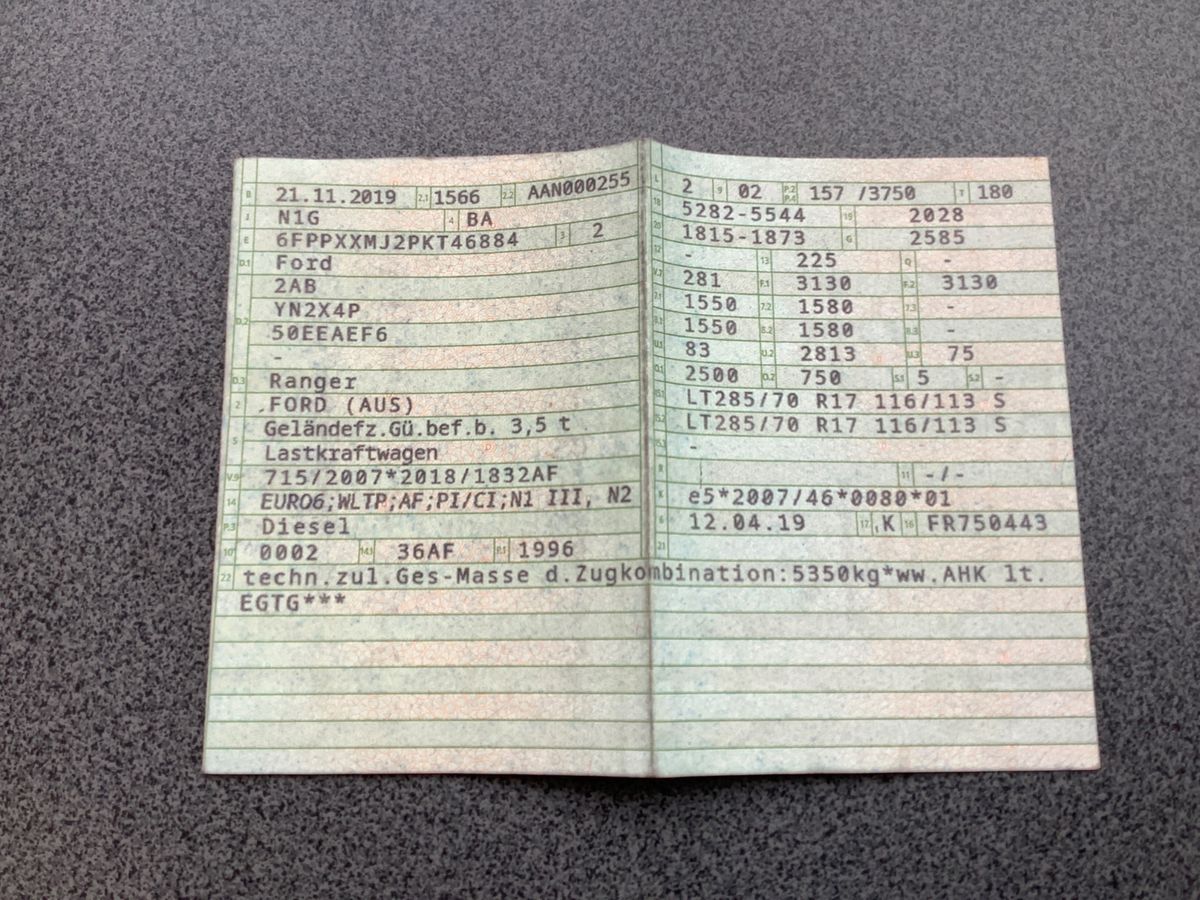 B 21.11.2019 2.1 1566 2.2 AAN000255
J N1G 4 BA
E 6FPPXXMJ2PKT46884 3 2
D.1 Ford
2AB
D.2 YN2X4P
50EEAEF6
-
D.3 Ranger
2 FORD (AUS)
5 Geländefz.Gü.bef.b. 3,5 t
Lastkraftwagen
V.9 715/2007*2018/1832AF
14 EURO6;WLTP;AF;PI/CI;N1 III, N2
P.3 Diesel
10 0002 14.1 36AF P.1 1996
L 2 9 02 P.2 P.4 157 /3750 T 180
18 5282-5544 19 2028
20 1815-1873 G 2585
12 - 13 225 Q -
V.7 281 F.1 3130 F.2 3130
7.1 1550 7.2 1580 7.3 -
8.1 1550 8.2 1580 8.3 -
U.1 83 U.2 2813 U.3 75
O.1 2500 O.2 750 S.1 5 S.2 -
15.1 LT285/70 R17 116/113 S
15.2 LT285/70 R17 116/113 S
15.3 -
R 11 -/-
K e5*2007/46*0080*01
6 12.04.19 17 K 16 FR750443
21
22 techn.zul.Ges-Masse d.Zugkombination:5350kg*ww.AHK lt.
EGTG***